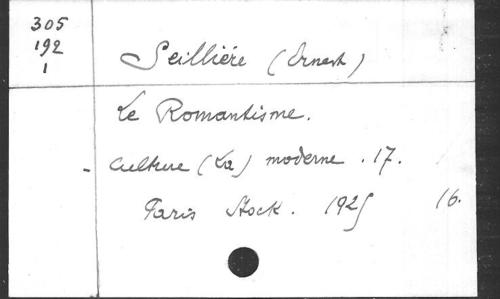 305
192
1
Seillière (Ernest)
Le Romantisme.
- Culture (La) moderne . 17.
Paris Stock . 1925 16.